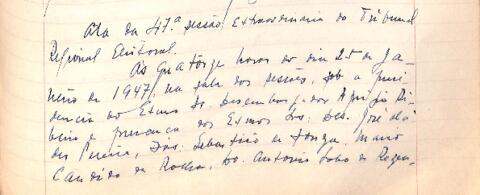 Ata da 47.ª sessão extraordinaria do Tribunal
Regional Eleitoral.
Às quatorze horas do dia 25 de Ja-
neiro de 1947, na sala das sessões, sob a presi-
dencia do Exmo Sr. Desembargador Aprigio Ri-
beiro e presença dos Exmos Srs. Des. José Al-
des Pereira, Drs. Sebastião de Souza, Mario
Candido da Rocha, Dr. Antonio Lobo de Rezen-